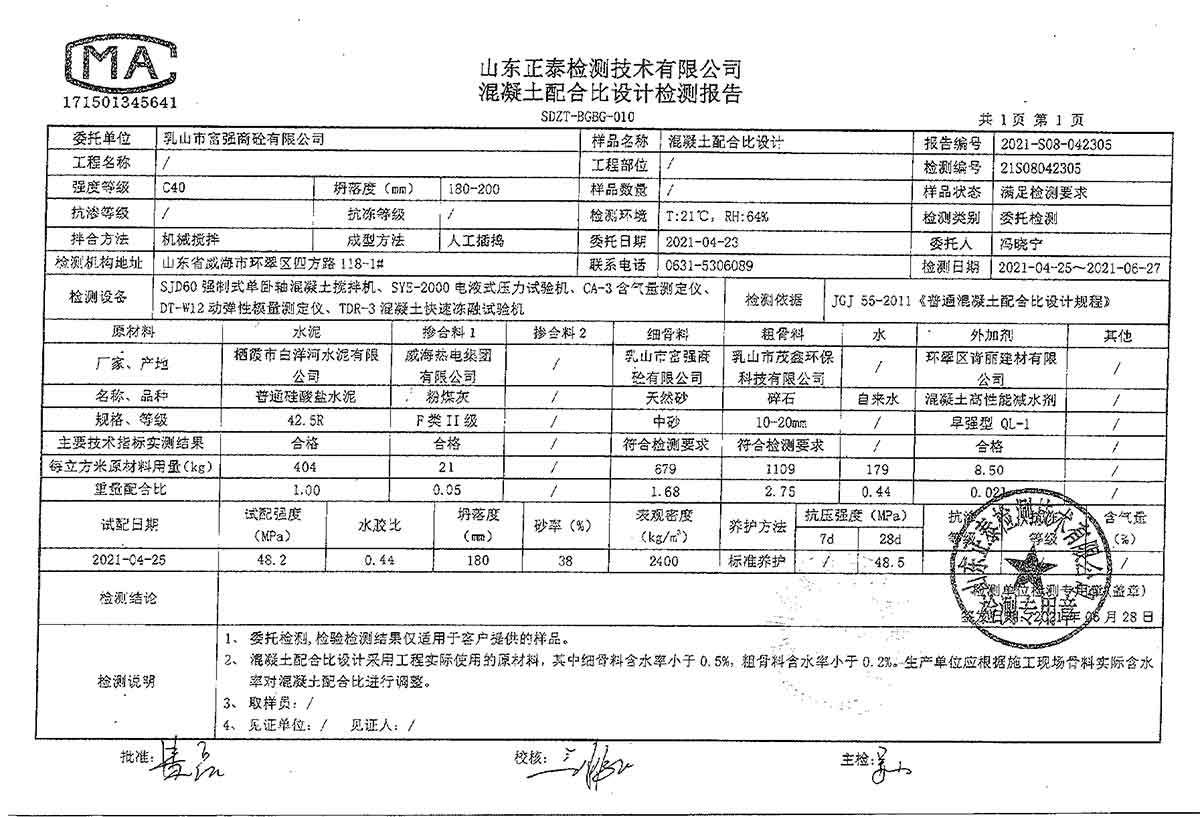 CMA
171501345641
山东正泰检测技术有限公司
混凝土配合比设计检测报告
SDZT-BGBG-010
共 1页 第 1 页
委托单位 乳山市富强商砼有限公司 样品名称 混凝土配合比设计 报告编号 2021-S08-042305
工程名称 / 工程部位 / 检测编号 21S08042305
强度等级 C40 坍落度（mm） 180-200 样品数量 / 样品状态 满足检测要求
抗渗等级 / 抗冻等级 / 检测环境 T:21℃，RH:64% 检测类别 委托检测
拌合方法 机械搅拌 成型方法 人工插捣 委托日期 2021-04-23 委托人 冯晓宁
检测机构地址 山东省威海市环翠区四方路 118-1# 联系电话 0631-5306089 检测日期 2021-04-25～2021-06-27
检测设备 SJD60 强制式单卧轴混凝土搅拌机、SYE-2000 电液式压力试验机、CA-3 含气量测定仪、
DT-W12 动弹性模量测定仪、TDR-3 混凝土快速冻融试验机
检测依据 JGJ 55-2011《普通混凝土配合比设计规程》
原材料 水泥 掺合料 1 掺合料 2 细骨料 粗骨料 水 外加剂 其他
厂家、产地 栖霞市白洋河水泥有限公司 威海热电集团有限公司 / 乳山市富强商砼有限公司 乳山市茂鑫环保科技有限公司 / 环翠区 丽建材有限公司 /
名称、品种 普通硅酸盐水泥 粉煤灰 / 天然砂 碎石 自来水 混凝土高性能减水剂 /
规格、等级 42.5R F 类 II 级 / 中砂 10-20mm / 早强型 QL-1 /
主要技术指标实测结果 合格 合格 / 符合检测要求 符合检测要求 / 合格 /
每立方米原材料用量(kg) 404 21 / 679 1109 179 8.50 /
重量配合比 1.00 0.05 / 1.68 2.75 0.44 0.021 /
试配日期 试配强度（MPa） 水胶比 坍落度（mm） 砂率（%） 表观密度（kg/m³） 养护方法 抗压强度（MPa） 7d 28d 抗渗等级 抗冻等级 含气量（%）
2021-04-25 48.2 0.44 180 38 2400 标准养护 / 48.5 /
检测结论
检测单位检测专用章(盖章)
签发日期：2021年06月28日
山东正泰检测技术有限公司
检测专用章
检测说明
1、 委托检测,检验检测结果仅适用于客户提供的样品。
2、 混凝土配合比设计采用工程实际使用的原材料，其中细骨料含水率小于 0.5%，粗骨料含水率小于 0.2%。生产单位应根据施工现场骨料实际含水
率对混凝土配合比进行调整。
3、 取样员：/
4、 见证单位：/ 见证人：/
批准： 校核： 主检：